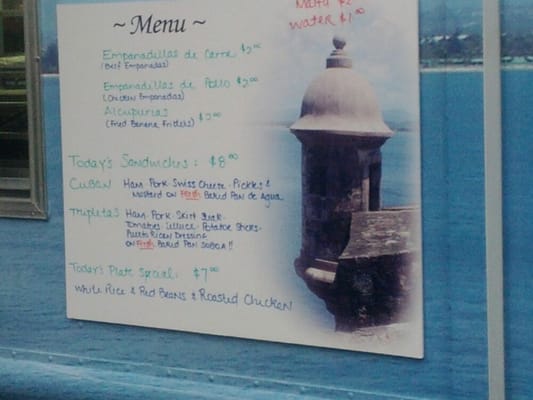 Malta $2
water $1⁰⁰
~ Menu ~
Empanadillas de Carne $2⁰⁰
(Beef Empanadas)
Empanadillas de Pollo $2⁰⁰
(Chicken Empanadas)
Alcupurias
(Fried Banana Friters) $2⁰⁰
Today's Sandwiches: $8⁰⁰
Cuban Ham. Pork. Swiss Cheese. Pickles &
Mustard on Fresh Baked Pan de Agua
Tripletas Ham. Pork. Skirt Steak.
Tomatoes. Lettuce. Potatoe Sticks.
Puerto Rican Dressing
on Fresh Baked Pan Sobao!!
Today's Plate Special: $7⁰⁰
White Rice & Red Beans & Roasted Chicken